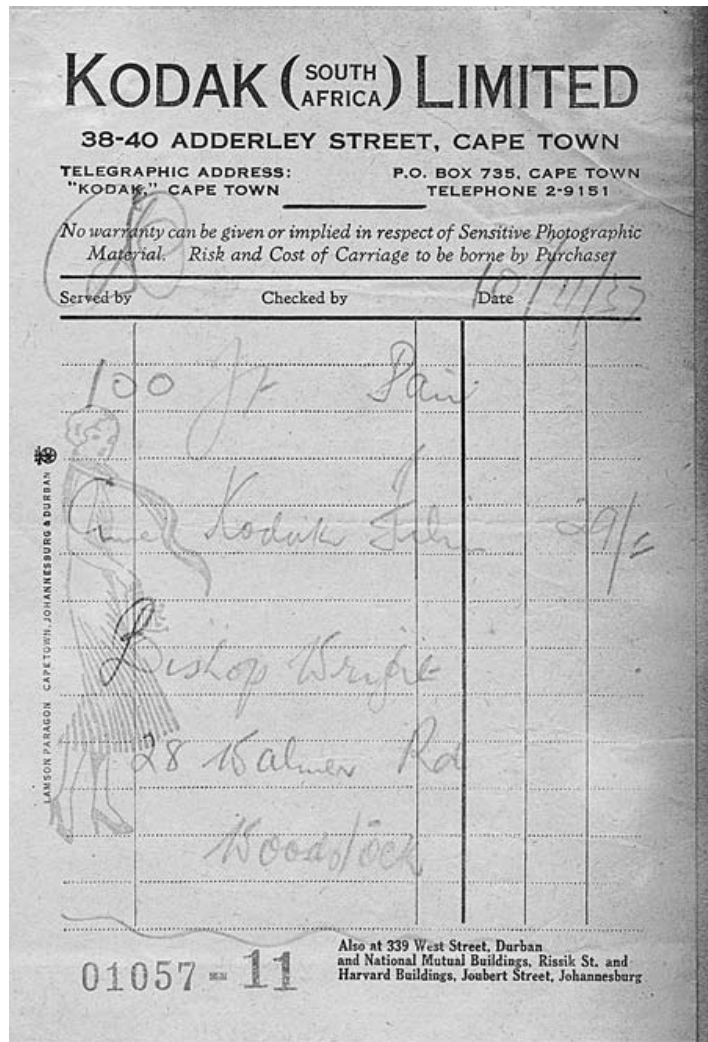 KODAK (SOUTH AFRICA) LIMITED
38-40 ADDERLEY STREET, CAPE TOWN
TELEGRAPHIC ADDRESS: P.O. BOX 735, CAPE TOWN
"KODAK," CAPE TOWN TELEPHONE 2-9151
No warranty can be given or implied in respect of Sensitive Photographic
Material. Risk and Cost of Carriage to be borne by Purchaser
Served by Checked by Date 10/11/37
100 ft Pan
Kodak Film 29/-
Bishop Wright
28 Walmer Rd
Woodstock
LAMSON PARAGON CAPETOWN, JOHANNESBURG & DURBAN
01057 - 11
Also at 339 West Street, Durban
and National Mutual Buildings, Rissik St. and
Harvard Buildings, Joubert Street, Johannesburg